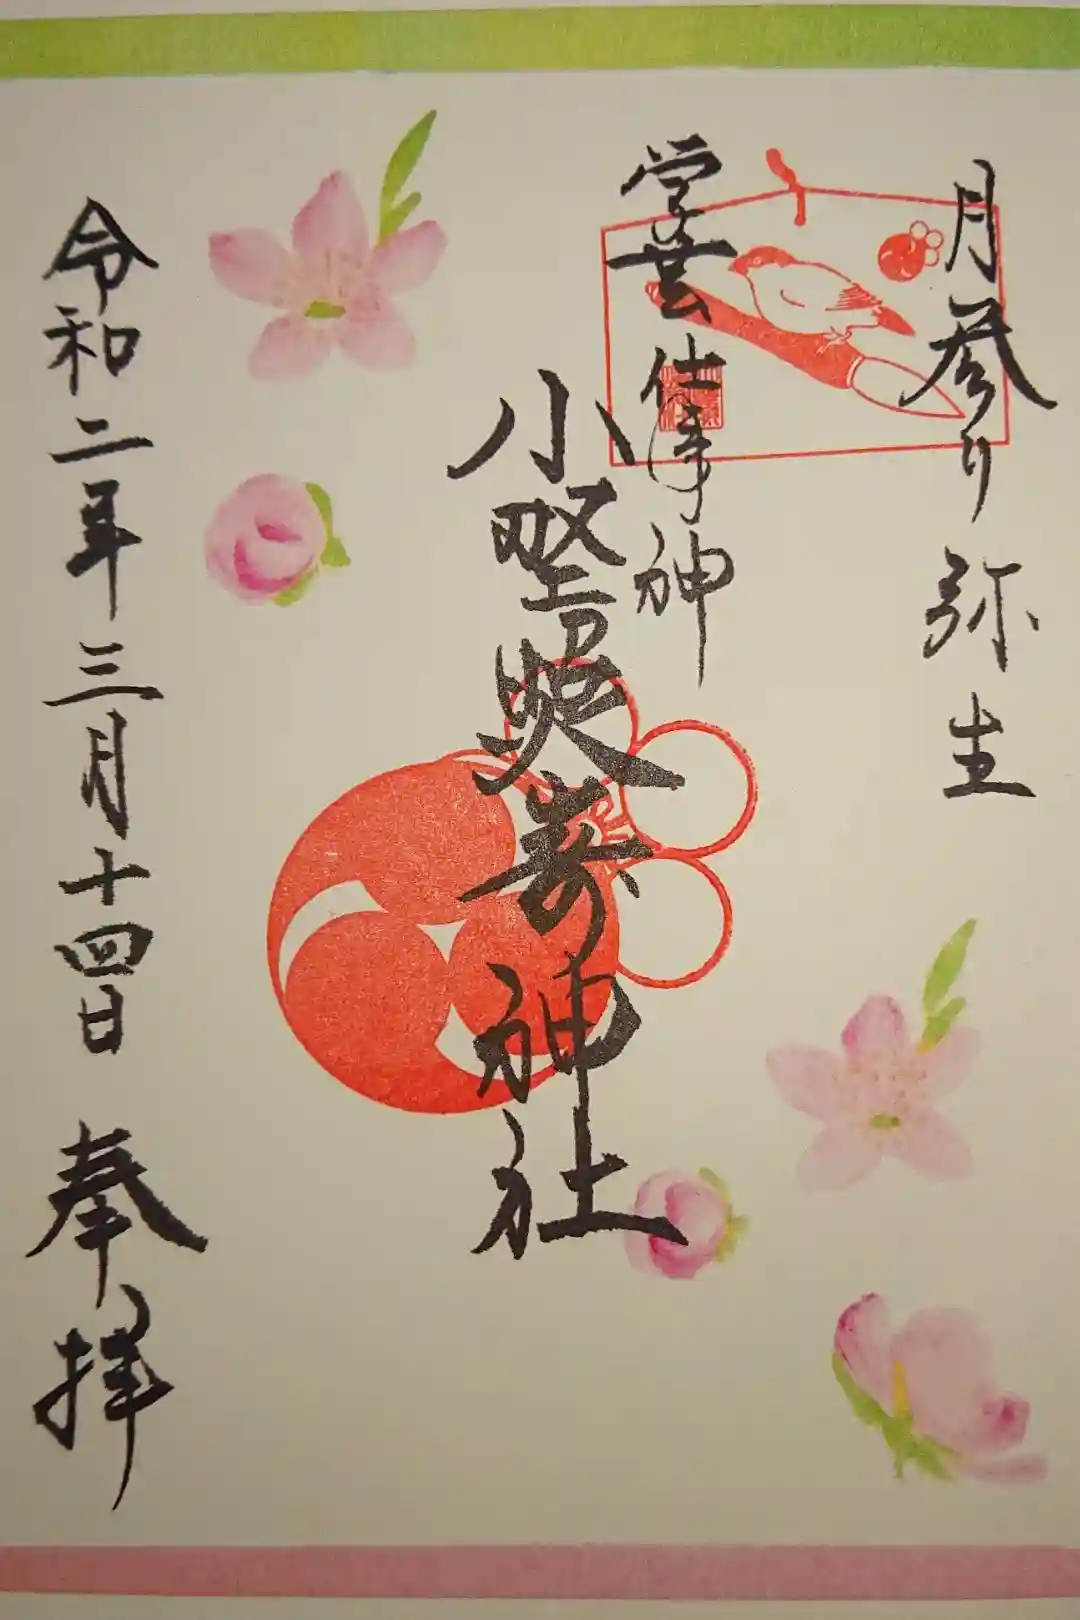 月参り 弥生
学芸 仕事 神
小野照崎神社
令和二年三月十四日 奉拝